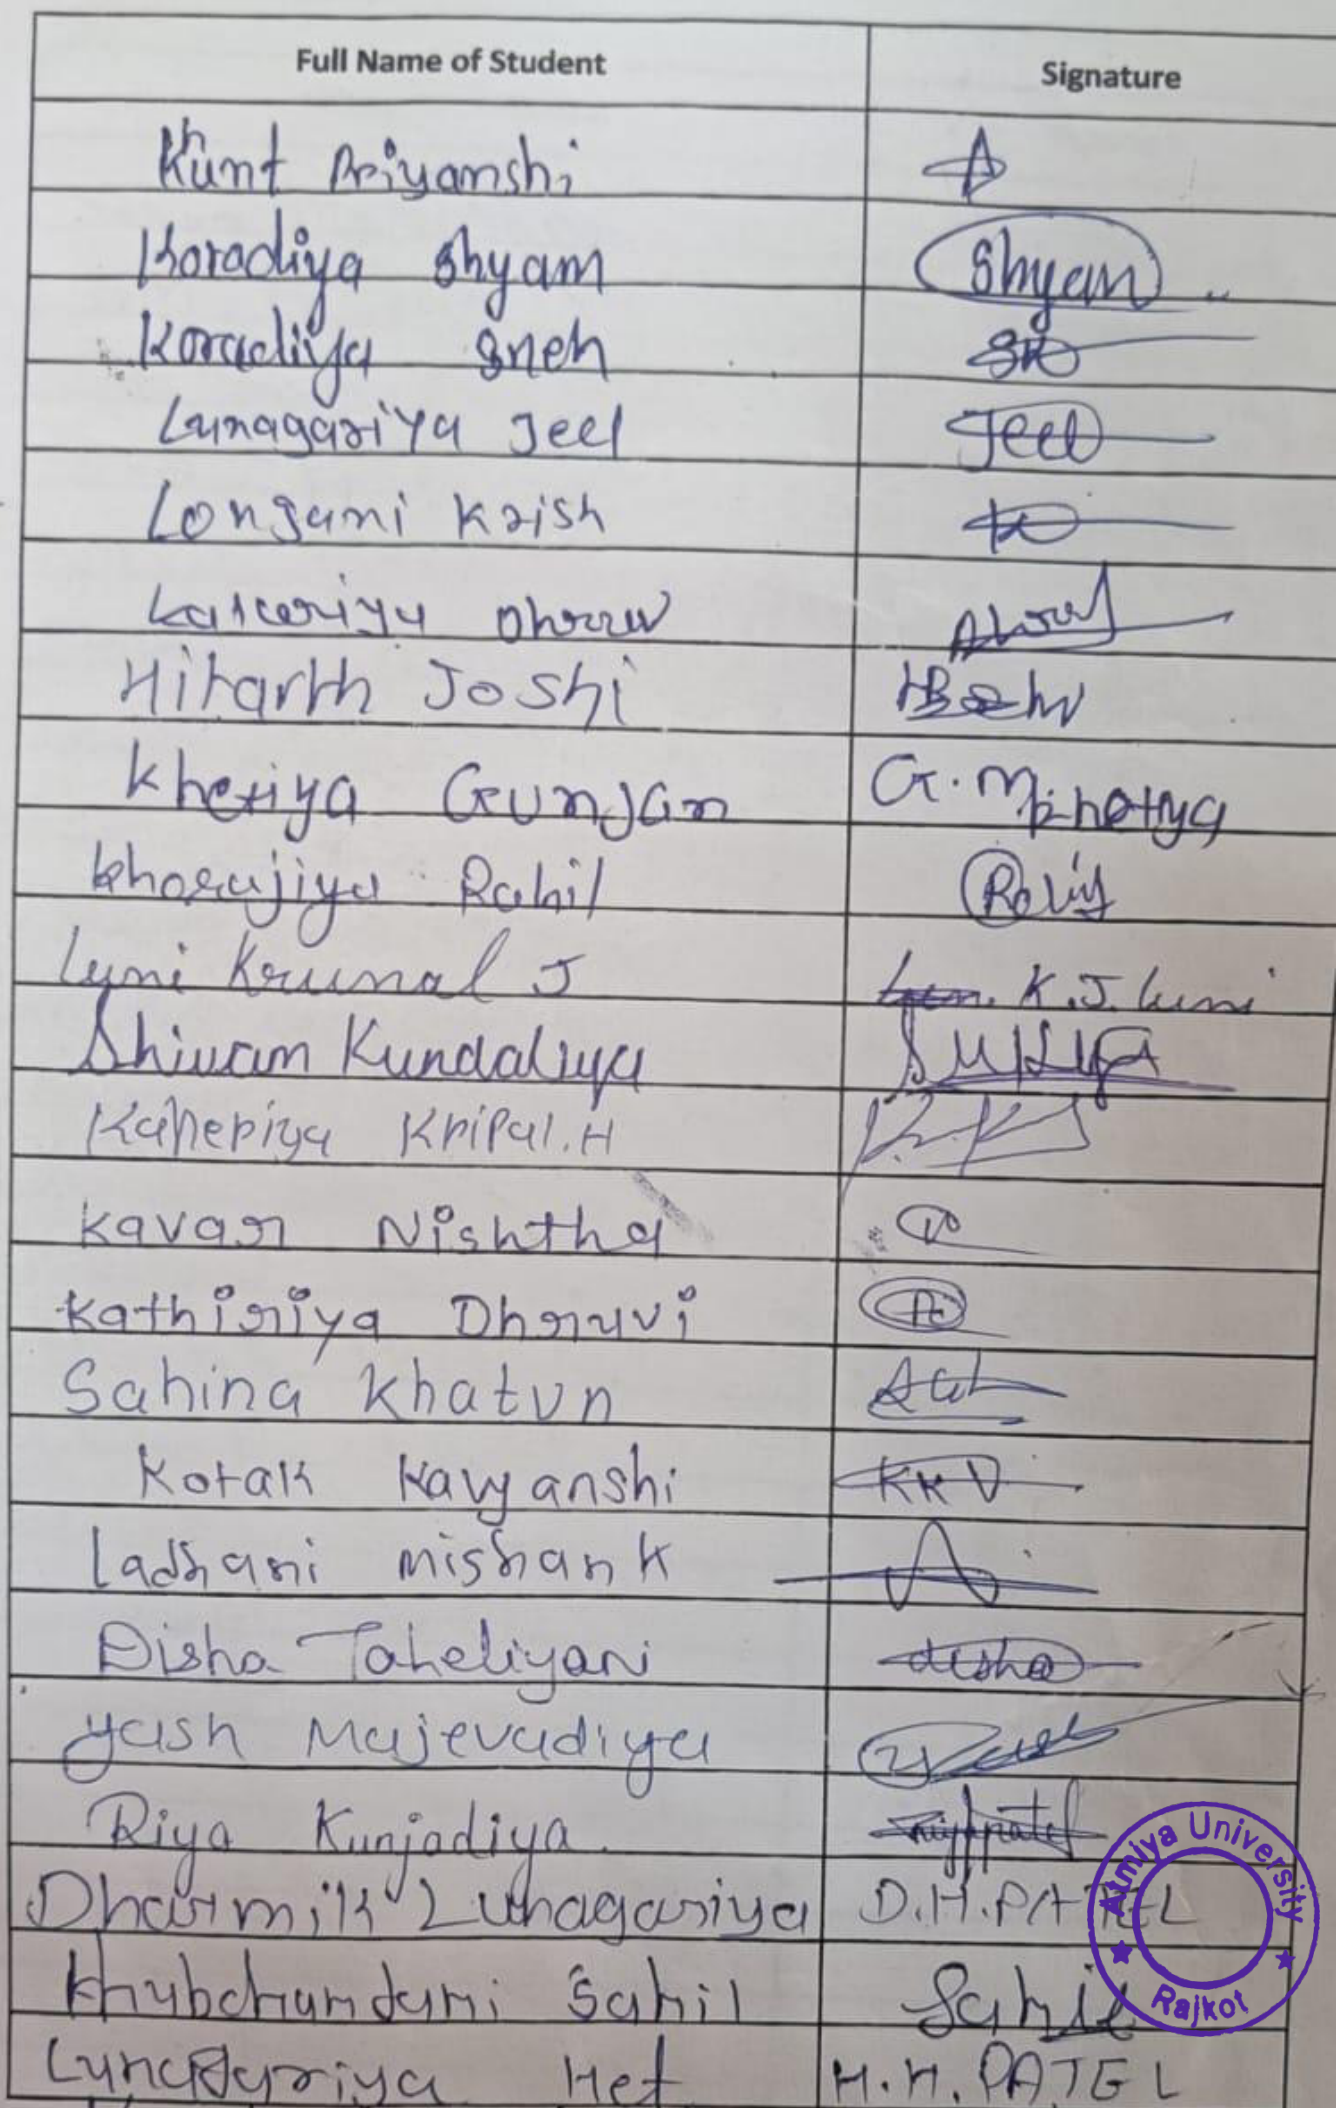 Full Name of Student Signature
Khunt Priyanshi
Koradiya Shyam Shyam
Koradiya Sneh
Lunagariya Jeel Jeel
Longani Krish
Dhruv
Hitarth Joshi
Kheriya Gunjan G.M.
Rahil
Luni Krunal J K.J. Luni
Shivam Kundaliya
Kaneriya Kripal.H
Kavar Nishtha
Kathiriya Dhruvi
Sahina Khatun
Kotak Kavyanshi KKV
Ladhani Mishank
Disha Taheliyani disha
Yash Majevadiya
Riya Kunjadiya riyapatel
Dharmik Lunagariya D.H.PATEL
Khubchandani Sahil Sahil
Lunagariya Het H.H.PATEL
Atmiya University
Rajkot